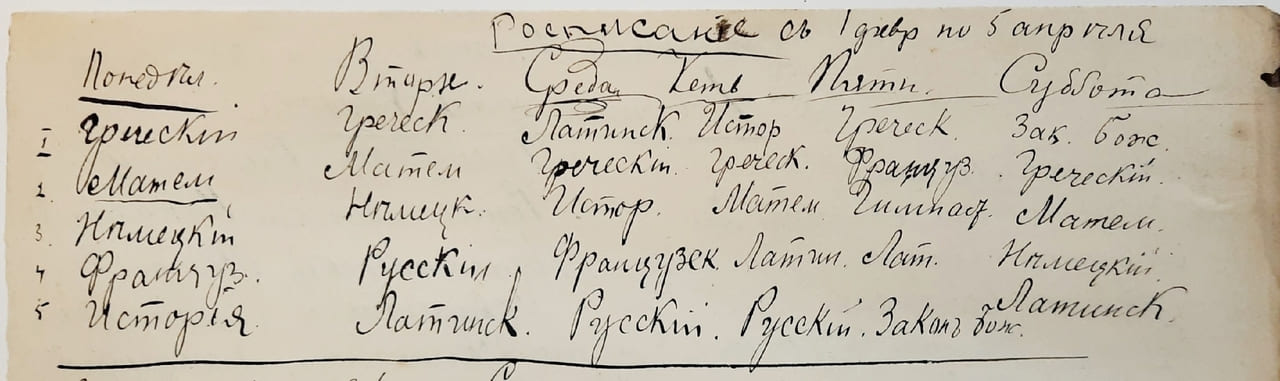 Росписание съ 1 февр по 5 апрѣля
Понедѣл. Вторн. Среда Четв Пятн. Суббота
I Греческій Греческ. Латинск. Истор Греческ. Зак. Бож.
2. Матем Матем Греческій. Греческ. Француз. Греческій.
3. Нѣмецкій Нѣмецк. Истор. Матем. Гимнаст. Матем.
4 Француз. Русскій Французск. Латин. Лат. Нѣмецкій
5 Исторія. Латинск. Русскій. Русскій. Законъ Бож. Латинск.